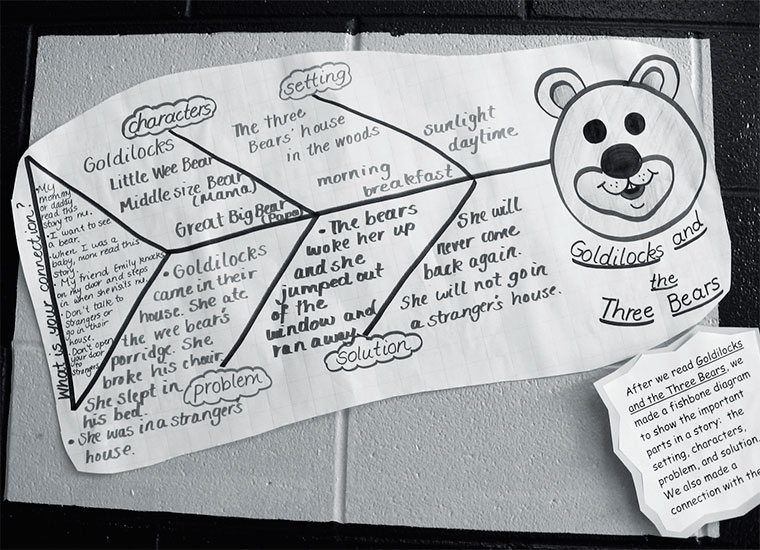 setting
characters
The three
Bears' house
in the woods
sunlight
daytime
morning
breakfast
Goldilocks
Little Wee Bear
Middle size Bear
(Mama)
Great Big Bear
(Papa)
What is your connection?
• My
mommy
or daddy
read this
story to me.
• I want to see
a bear.
• When I was a
baby, mom read this
story.
• My friend Emily knocks
on my door and steps
in when she visits me.
• Don't talk to
strangers or
go in their
house.
• Don't open
your door
to
strangers
• Goldilocks
came in their
house. She ate
the wee bear's
porridge. She
broke his chair.
She slept in
his bed.
• She was in a stranger's
house.
problem
• The bears
woke her up
and she
jumped out
of the
window and
ran away.
She will
never come
back again.
She will not go in
a stranger's house.
solution
Goldilocks and
the
Three Bears
After we read Goldilocks
and the Three Bears, we
made a fishbone diagram
to show the important
parts in a story: the
setting, characters,
problem, and solution.
We also made a
connection with the